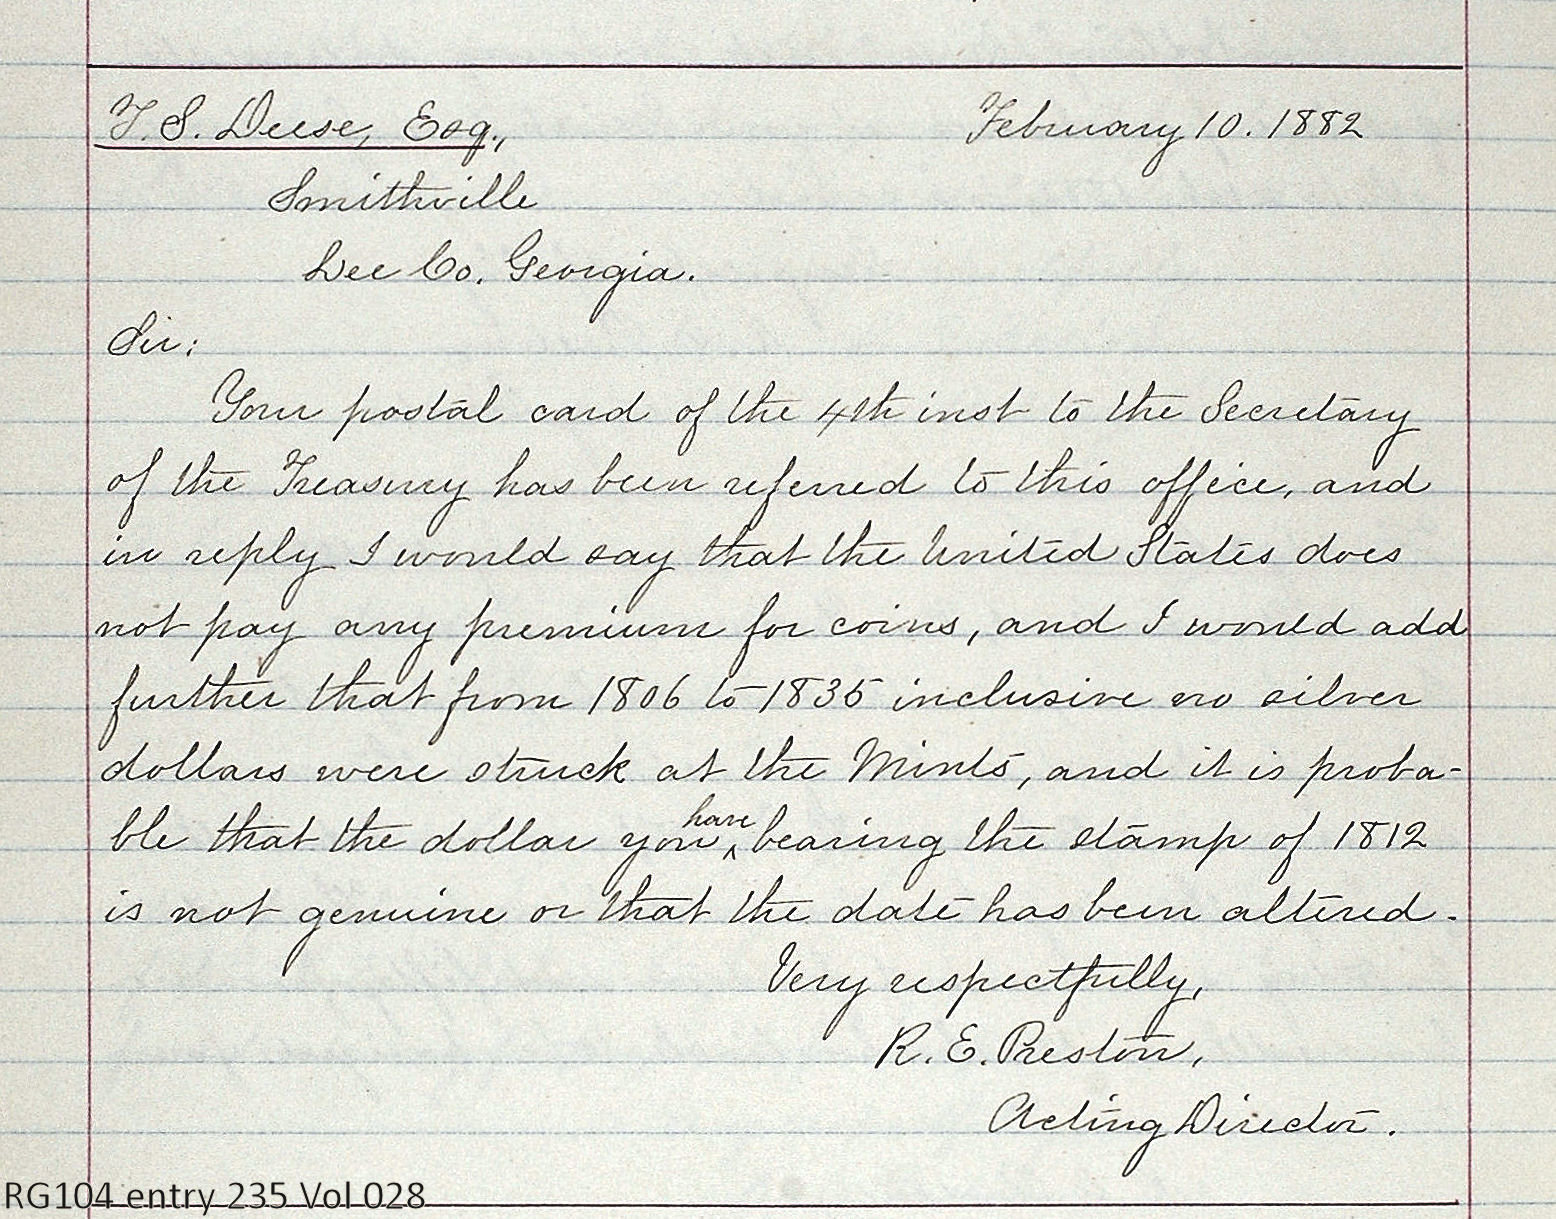 T. S. Deese, Esq., February 10. 1882
Smithville
Lee Co. Georgia.
Sir:
Your postal card of the 4th inst to the Secretary
of the Treasury has been referred to this office, and
in reply I would say that the United States does
not pay any premium for coins, and I would add
further that from 1806 to 1835 inclusive no silver
dollars were struck at the Mints, and it is proba-
ble that the dollar you ^have bearing the stamp of 1812
is not genuine or that the date has been altered.
Very respectfully,
R. E. Preston,
Acting Director.
RG104 entry 235 Vol 028